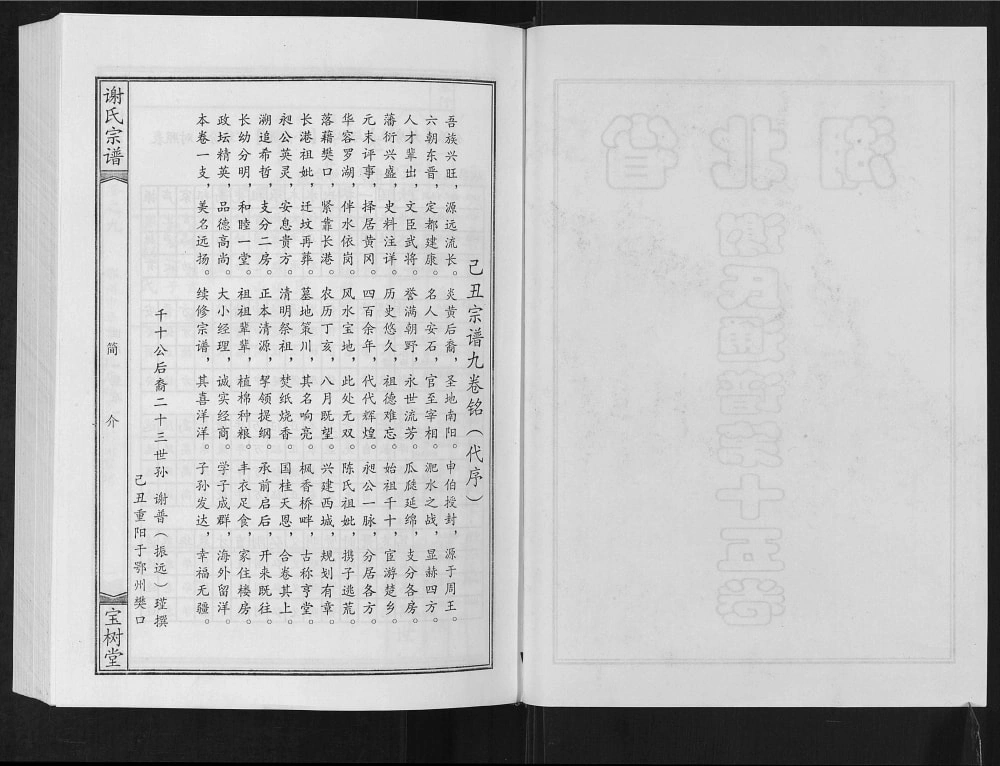 己丑宗谱九卷铭（代序）
吾族兴旺，源远流长。炎黄后裔，圣地南阳。申伯授封，源于周王。
六朝东晋，定都建康。名人安石，官至宰相。淝水之战，显赫四方。
人才辈出，文臣武将。誉满朝野，永世流芳。瓜瓞延绵，支分各房。
藩衍兴盛，史料注详。历史悠久，祖德难忘。始祖千十，宦游楚乡。
元末评事，择居黄冈。四百余年，代代辉煌。昶公一脉，分居各方。
华容罗湖，伴水依岗。风水宝地，此处无双。陈氏祖妣，携子逃荒。
落藉樊口，紧靠长港。农历丁亥，八月既望。兴建西城，规划有章。
长港祖妣，迁坟再葬。墓地策川，其名响亮。枫香桥畔，古称亨堂。
昶公英灵，安息贵方。清明祭祖，焚纸烧香。国桂天恩，合卷其上。
溯追希哲，支分二房。正本清源，挈领提纲。承前启后，开来既往。
长幼分明，和睦一堂。祖祖辈辈，植棉种粮。丰衣足食，家住楼房。
政坛精英，品德高尚。大小经理，诚实经商。学子成群，海外留洋。
本卷一支，美名远扬。续修宗谱，其喜洋洋。子孙发达，幸福无疆。
千十公后裔二十三世孙 谢普（振远）瑾撰
己丑重阳于鄂州樊口
谢氏宗谱
简介
宝树堂